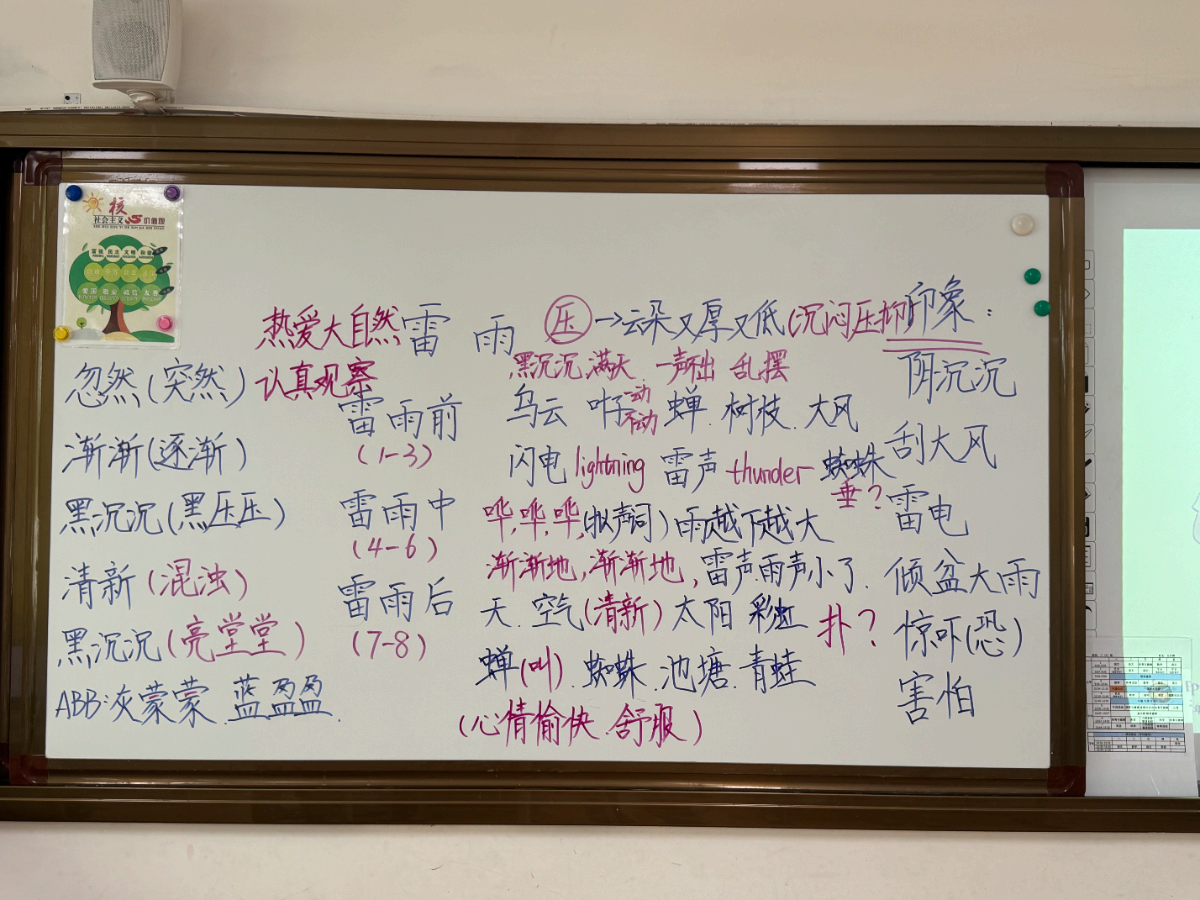 核
社会主义 价值观
富强 民主 文明 和谐
爱国 敬业 诚信 友善
热爱大自然 雷 雨 压→云朵又厚又低(沉闷压抑)印象:
认真观察
忽然(突然)
渐渐(逐渐)
黑沉沉(黑压压)
清新(混浊)
黑沉沉(亮堂堂)
ABB:灰蒙蒙 蓝盈盈.
雷雨前
(1-3)
雷雨中
(4-6)
雷雨后
(7-8)
黑沉沉 满天 一声不出 乱摆
乌云 叶子 动 不动 蝉.树枝.大风
闪电 lightning 雷声 thunder 蜘蛛
垂?
哗,哗,哗,(拟声词)雨越下越大
渐渐地,渐渐地,雷声.雨声小了.
天.空气(清新)太阳 彩虹 扑?
蝉(叫).蜘蛛.池塘.青蛙
(心情愉快.舒服)
阴沉沉
刮大风
雷电
倾盆大雨
惊吓(恐)
害怕